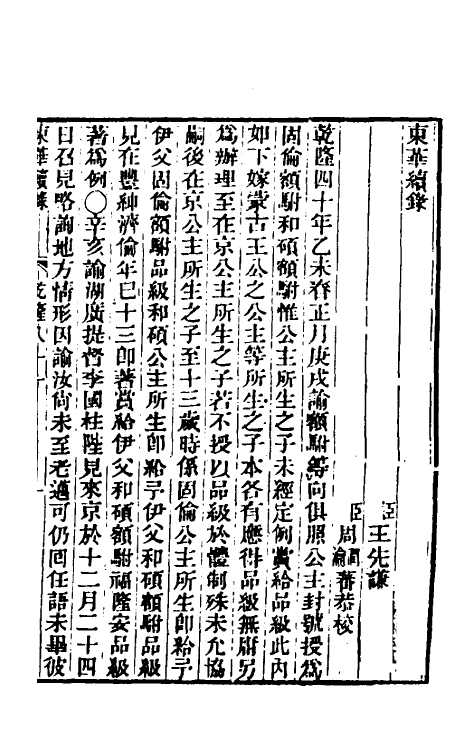 東華續錄
臣王先謙
臣周潤蕃恭校
乾隆四十年乙未春正月庚戌諭額駙等向俱照公主封號授爲
固倫額駙和碩額駙惟公主所生之子未經定例賞給品級此內
如下嫁蒙古王公之公主等所生之子本各有應得品級無庸另
爲辦理至在京公主所生之子若不授以品級於體制殊未允協
嗣後在京公主所生之子至十三歲時係固倫公主所生卽給予
伊父固倫額駙品級和碩公主所生卽給予伊父和碩額駙品級
見在豐紳濟倫年已十三卽著賞給伊父和碩額駙福隆安品級
著爲例〇辛亥諭湖廣提督李國柱陛見來京於十二月二十四
日召見略詢地方情形因諭汝尙未至老邁可仍回任語未畢彼
東華續錄 乾隆八十一